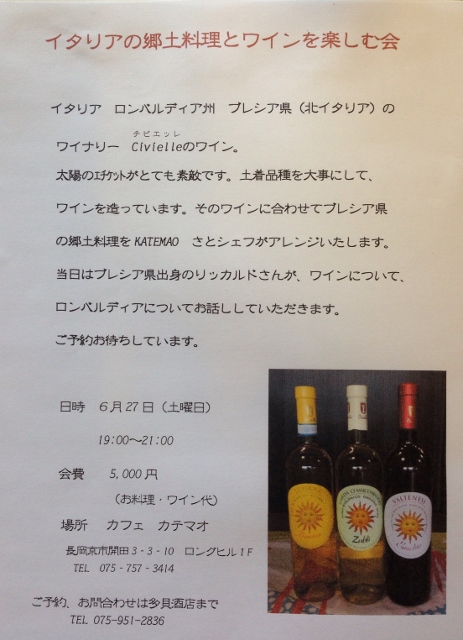 イタリアの郷土料理とワインを楽しむ会
イタリア ロンバルディア州 ブレシア県（北イタリア）の
チビエッレ
ワイナリー Civielleのワイン。
太陽のｴﾁｹｯﾄがとても素敵です。土着品種を大事にして、
ワインを造っています。そのワインに合わせてブレシア県
の郷土料理をKATEMAO さとシェフがアレンジいたします。
当日はブレシア県出身のリッカルドさんが、ワインについて、
ロンバルディアについてお話ししていただきます。
ご予約お待ちしています。
日時 ６月２７日（土曜日）
19:00～21:00
会費 5,000円
（お料理・ワイン代）
場所 カフェ カテマオ
長岡京市開田３-３-１０ ロングヒル１F
TEL 075-757-3414
ご予約、お問合わせは多貝酒店まで
TEL 075-951-2836